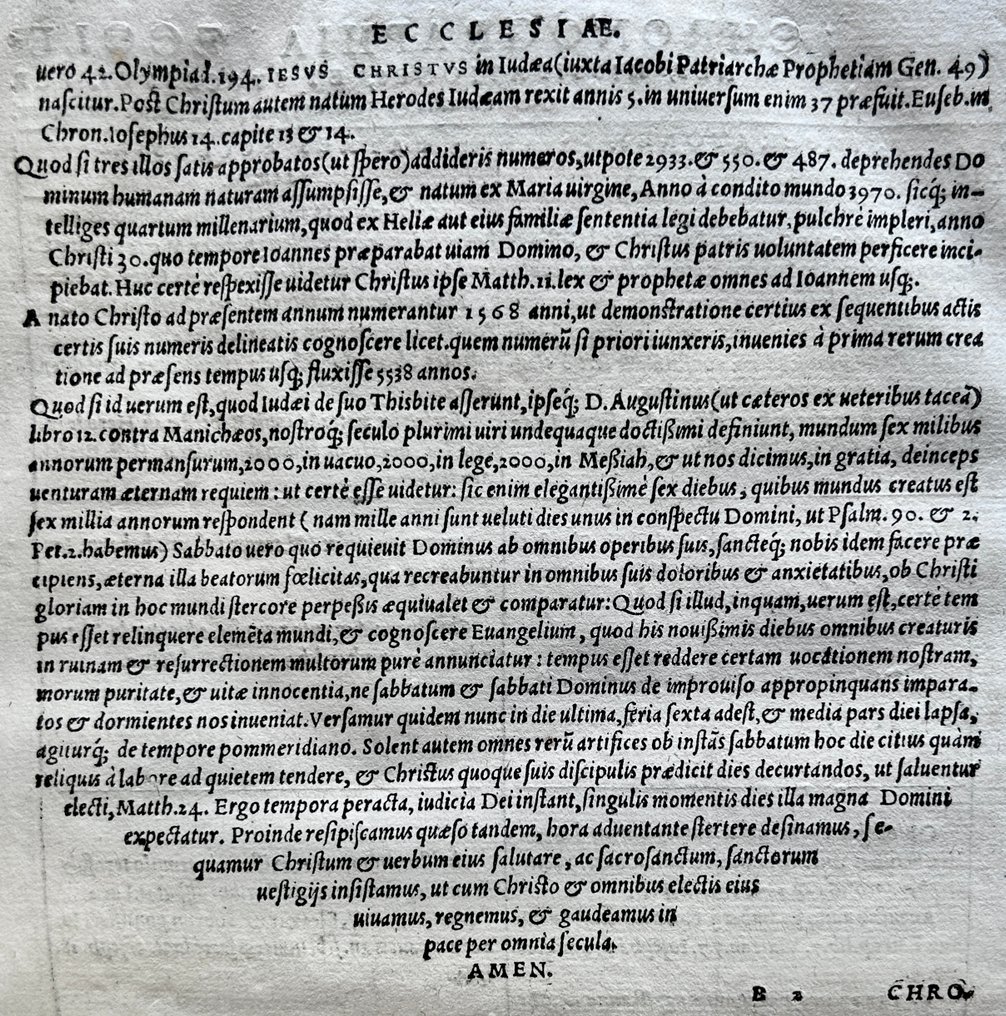 ECCLESIAE.
uero 42. Olympiad. 194. IESVS CHRISTVS in Iudæa (iuxta Iacobi Patriarchæ Prophetiam Gen. 49)
naſcitur. Poſt Chriſtum autem natum Herodes Iudæam rexit annis 5. in uniuerſum enim 37 præfuit. Euſeb. in
Chron. Ioſephus 14. capite 13 & 14.
Quod ſi tres illos ſatis approbatos (ut ſpero) addideris numeros, utpote 2933. & 550. & 487. deprehendes Do
minum humanam naturam aſſumpſiſſe, & natum ex Maria uirgine, Anno à condito mundo 3970. ſicq́; in-
telliges quartum millenarium, quod ex Heliæ aut eius familiæ ſententia legi debebatur. pulchrè impleri, anno
Chriſti 30. quo tempore Ioannes præparabat uiam Domino, & Chriſtus patris uoluntatem perficere inci-
piebat. Huc certè reſpexiſſe uidetur Chriſtus ipſe Matth. 11. lex & prophetæ omnes ad Ioannem uſq;.
A nato Chriſto ad præſentem annum numerantur 1568 anni, ut demonſtratione certius ex ſequentibus actis
certis ſuis numeris delineatis cognoſcere licet. quem numerũ ſi priori iunxeris, inuenies à prima rerum crea
tione ad præſens tempus uſq; fluxiſſe 5538 annos.
Quod ſi id uerum eſt, quod Iudæi de ſuo Thisbite aſſerunt, ipſeq́; D. Auguſtinus (ut cæteros ex ueteribus taceã)
libro 12. contra Manichæos, noſtroq́; ſeculo plurimi uiri undequaque doctißimi definiunt, mundum ſex milibus
annorum permanſurum, 2000, in uacuo, 2000, in lege, 2000, in Meßiah, & ut nos dicimus, in gratia, deinceps
uenturam æternam requiem: ut certè eſſe uidetur: ſic enim elegantißimè ſex diebus, quibus mundus creatus eſt
ſex millia annorum reſpondent (nam mille anni ſunt ueluti dies unus in conſpectu Domini, ut Pſalm. 90. & 2.
Pet. 2. habemus) Sabbato uero quo requieuit Dominus ab omnibus operibus ſuis, ſancteq́; nobis idem facere præ
cipiens, æterna illa beatorum fœlicitas, qua recreabuntur in omnibus ſuis doloribus & anxietatibus, ob Chriſti
gloriam in hoc mundi ſtercore perpeßis æquiualet & comparatur: Quod ſi illud, inquam, uerum eſt, certè tem
pus eſſet relinquere elemẽta mundi, & cognoſcere Euangelium, quod his nouißimis diebus omnibus creaturis
in ruinam & reſurrectionem multorum purè annunciatur: tempus eſſet reddere certam uocationem noſtram,
morum puritate, & uitæ innocentia, ne ſabbatum & ſabbati Dominus de improuiſo appropinquans impara-
tos & dormientes nos inueniat. Verſamur quidem nunc in die ultima, feria ſexta adeſt, & media pars diei lapſa,
agiturq́; de tempore pommeridiano. Solent autem omnes rerũ artifices ob inſtãs ſabbatum hoc die citius quàm
reliquis à labore ad quietem tendere, & Chriſtus quoque ſuis diſcipulis prædicit dies decurtandos, ut ſaluentur
electi, Matth. 24. Ergo tempora peracta, iudicia Dei inſtant, ſingulis momentis dies illa magna Domini
expectatur. Proinde reſipiſcamus quæſo tandem, hora aduentante ſtertere deſinamus, ſe-
quamur Chriſtum & uerbum eius ſalutare, ac ſacroſanctum, ſanctorum
ueſtigijs inſiſtamus, ut cum Chriſto & omnibus electis eius
uiuamus, regnemus, & gaudeamus in
pace per omnia ſecula.
AMEN.
B 2 CHRO-